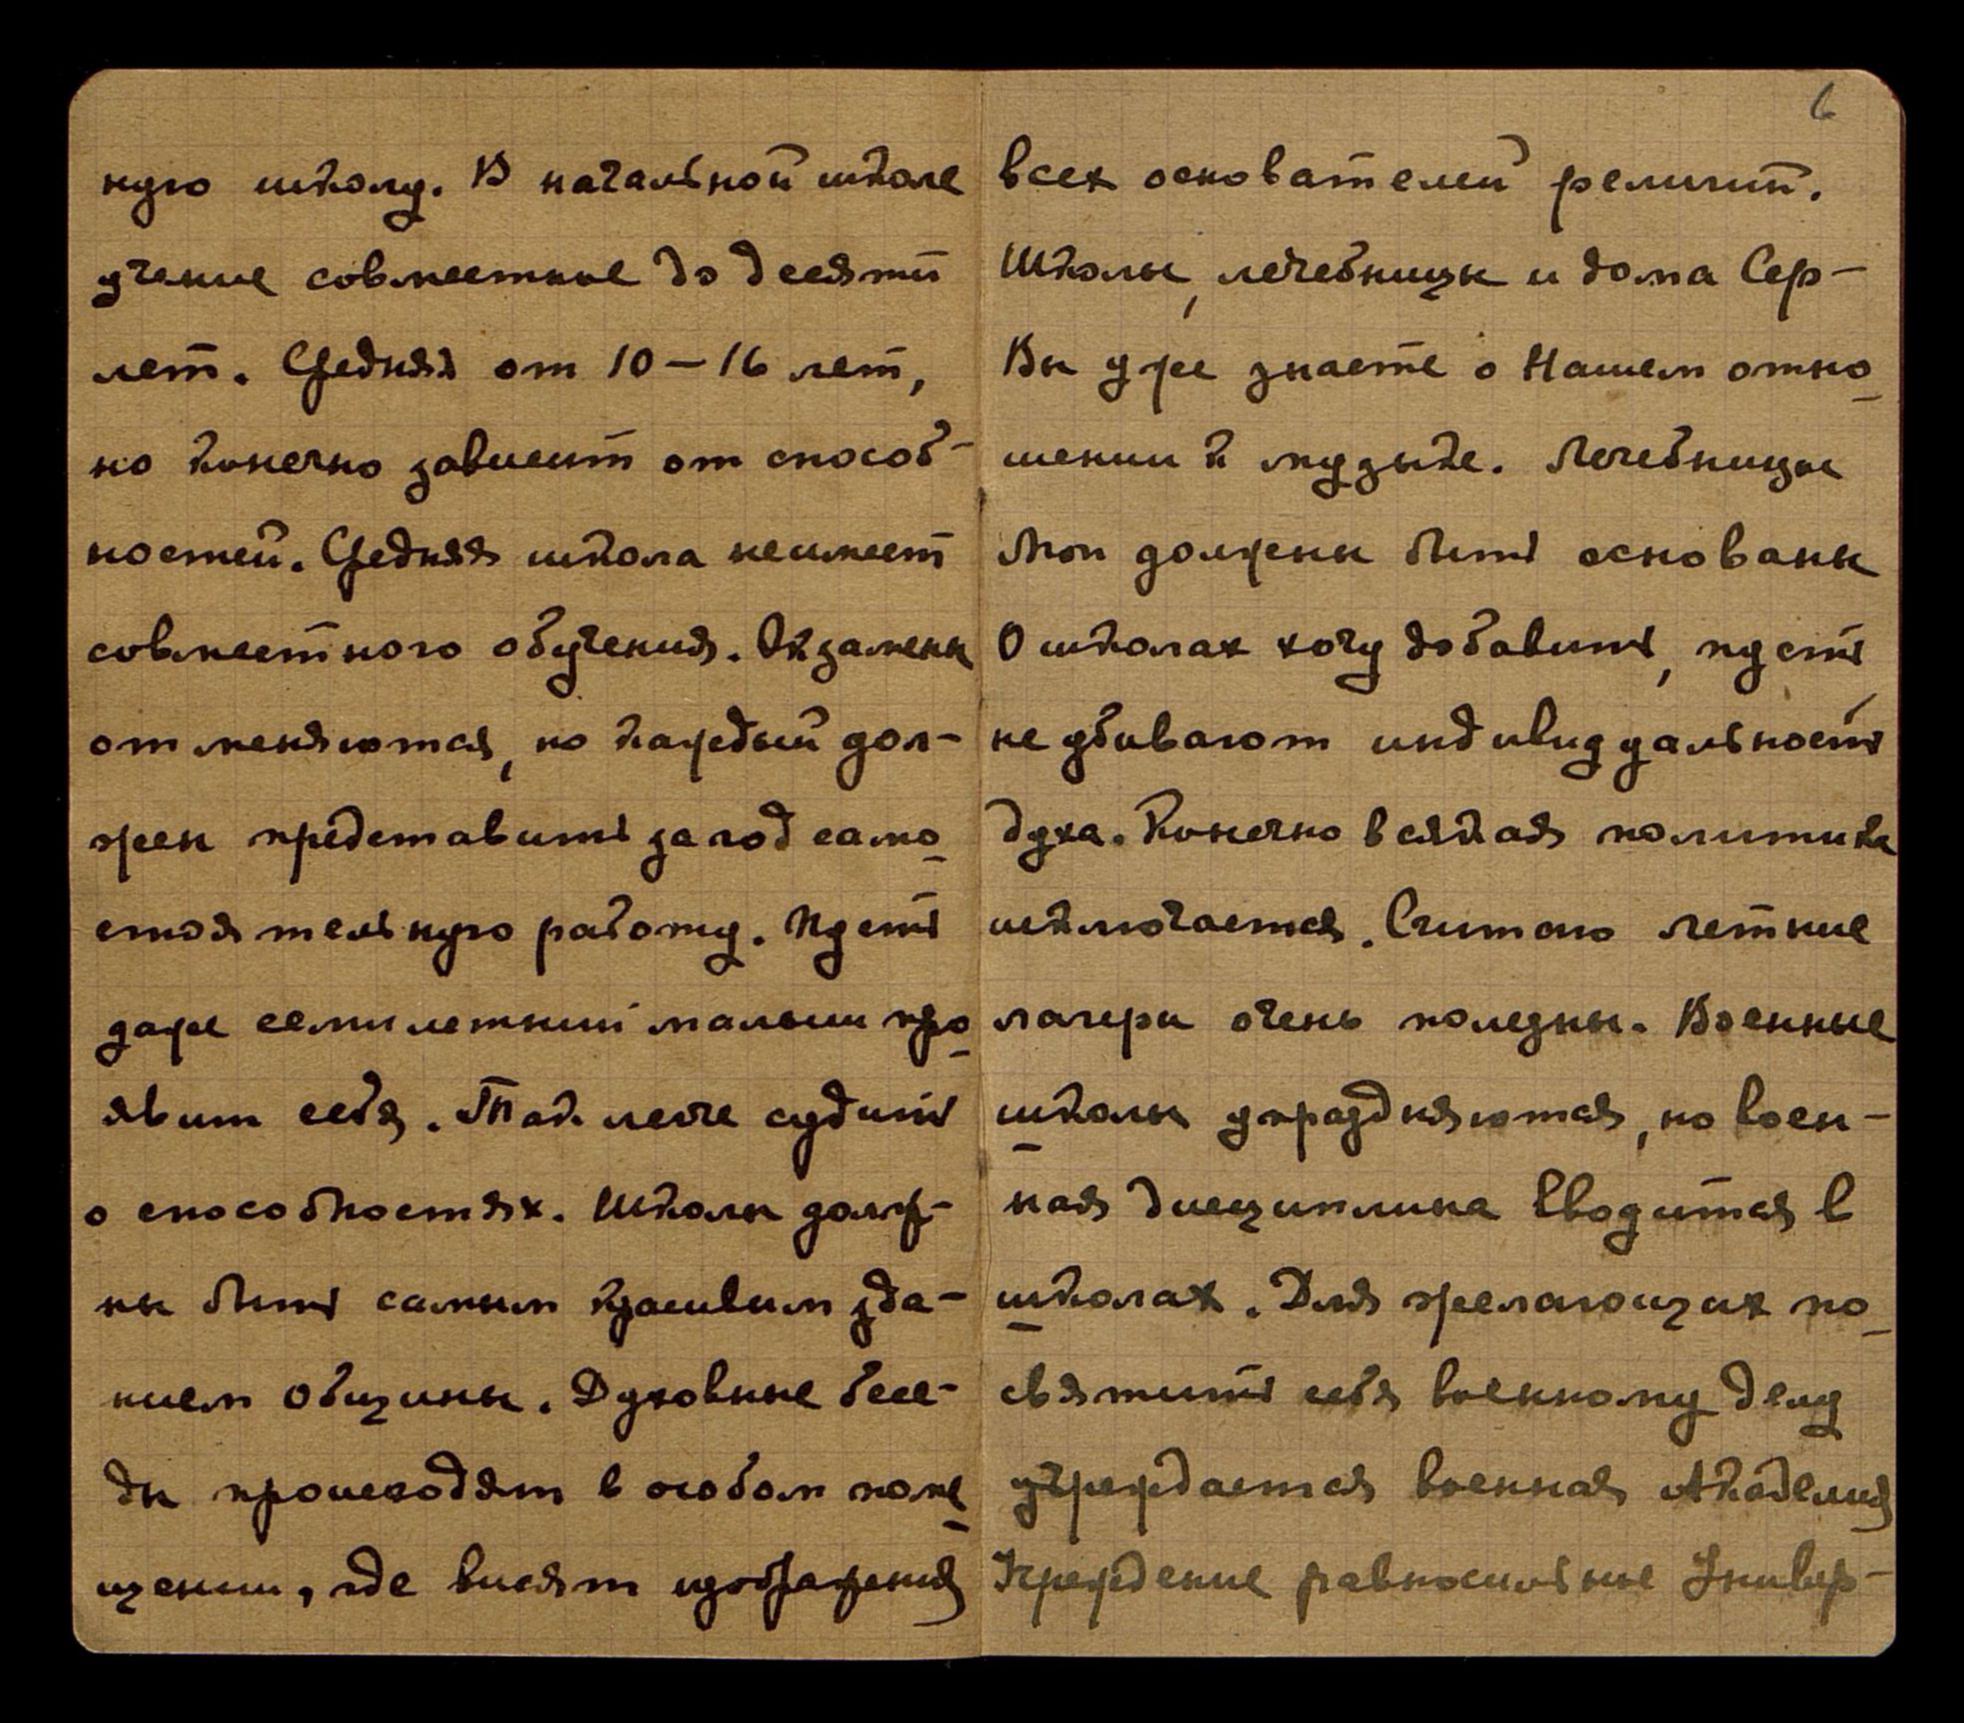 ную школу. В начальной школе
учение совместное до десяти
лет. Средняя от 10 – 16 лет,
но конечно зависит от способ-
ностей. Средняя школа не имеет
совместного обучения. Экзамены
отменяются, но каждый дол-
жен представить за год само-
стоятельную работу. Пусть
даже семилетний малыш про-
явит себя. Так легче судить
о способностях. Школы долж-
ны быть самым красивым зда-
нием Общины. Духовные бесе-
ды происходят в особом поме-
щении, где висят изображения
6
всех основателей религий.
Школы, лечебницы и дома Сер-
Вы уже знаете о Нашем отно-
шении к музыке. Лечебницы
Мои должны быть основаны
О школах хочу добавить, пусть
не убивают индивидуальность
духа. Конечно всякая политика
исключается. Считаю летние
лагери очень полезны. Военные
школы упраздняются, но воен-
ная дисциплина вводится в
школах. Для желающих по-
святить себя военному делу
учреждается военная Академия
Учреждение равносильное Универ-